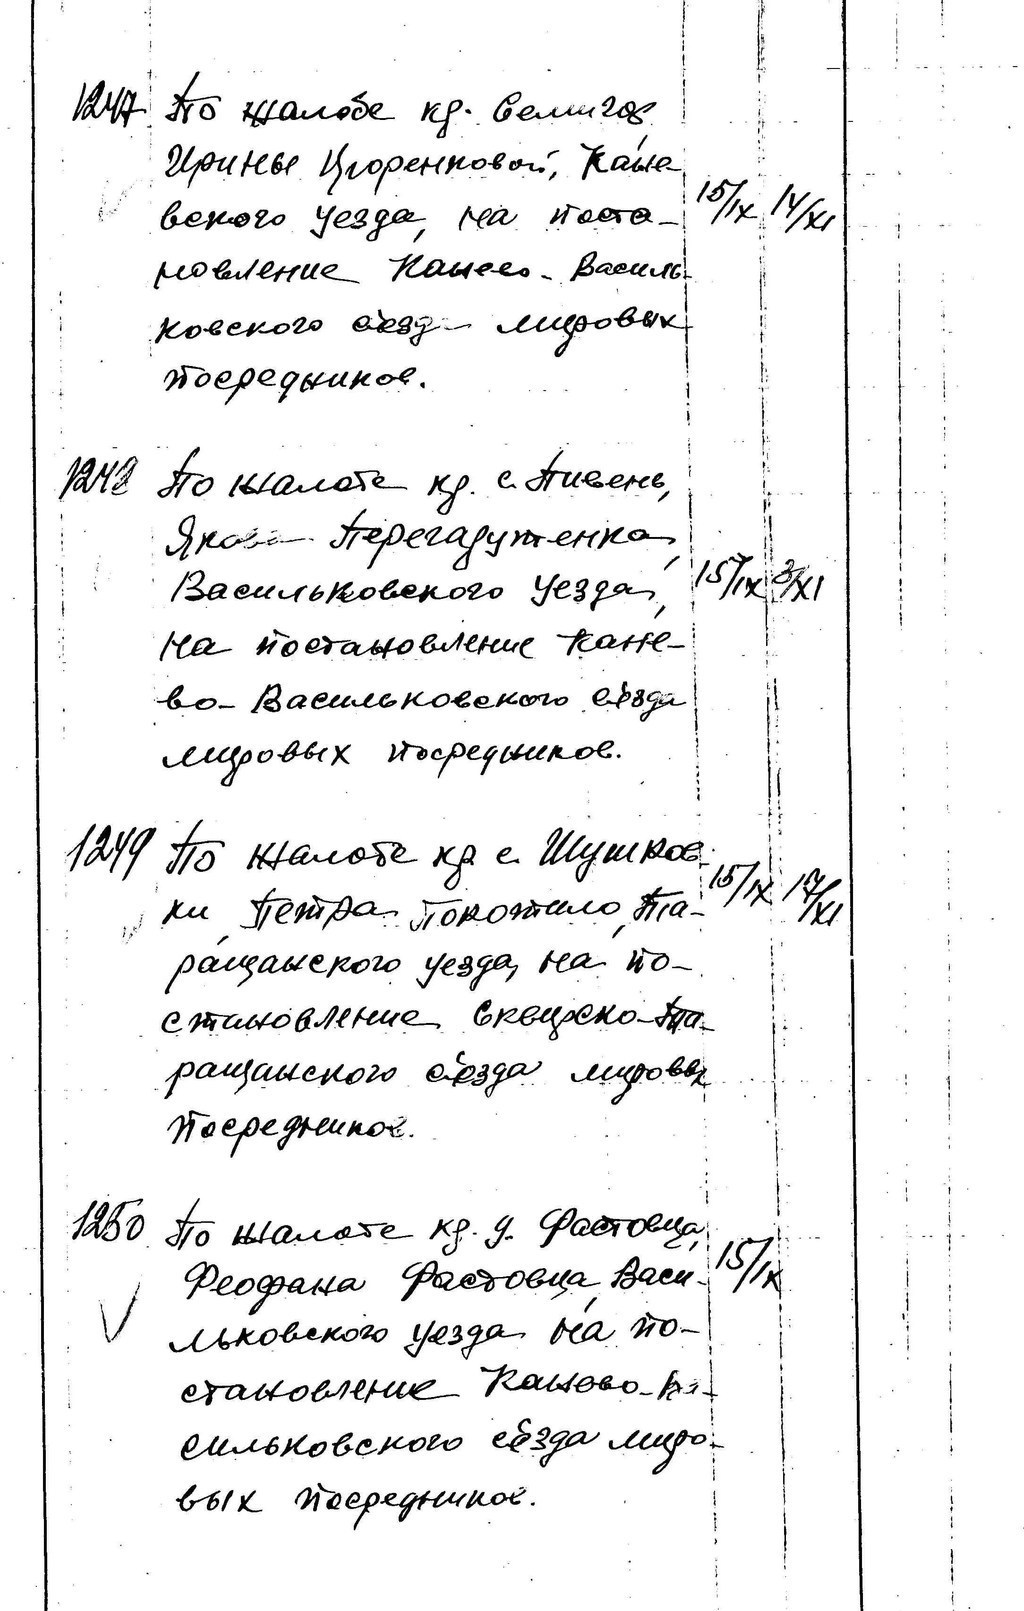 1247 По жалобе кр.
Ирины Цюренковой, Кане-
вского уезда, на поста- 15/IX 14/XI
новление Канево-Василь-
ковского съезда мировых
посредников.
1248 По жалобе кр. с. Пивень,
Якова Перегадутенка,
Васильковского уезда, 15/IX 3/XI
на постановление Кане-
во-Васильковского съезда
мировых посредников.
1249 По жалобе кр. с. Шушков-
ки Петра Покотило, Та- 15/IX 17/XI
ращанского уезда, на по-
становление Сквирско-Та-
ращанского съезда мировых
посредников.
1250 По жалобе кр. д. Фастовца,
Феофана Фастовца, Васи- 15/IX
льковского уезда на по-
становление Каново-Ва-
сильковского съезда миро-
вых посредников.